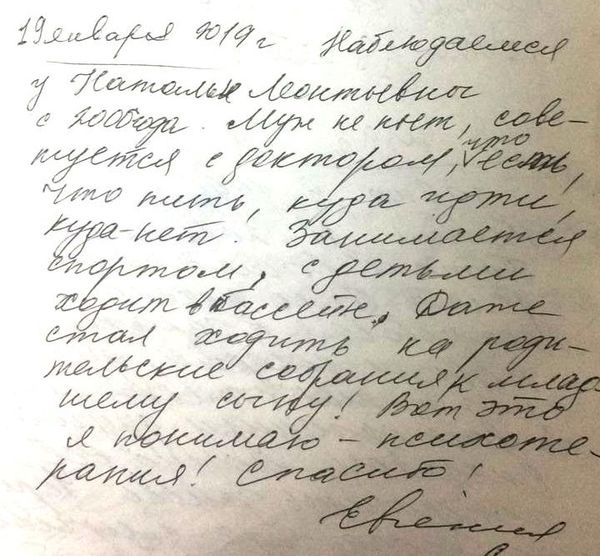 19 января 2019 г Наблюдаемся
у Натальи Леонтьевны
с 2006года. Муж не пьет, сове-
туется с доктором, что есть,
что пить, куда идти,
куда-нет. Занимается
спортом, с детьми
ходит в бассейн. Даже
стал ходить на роди-
тельские собрания к млад
шему сыну! Вот это
я понимаю - психоте-
рапия! Спасибо!
Евгения